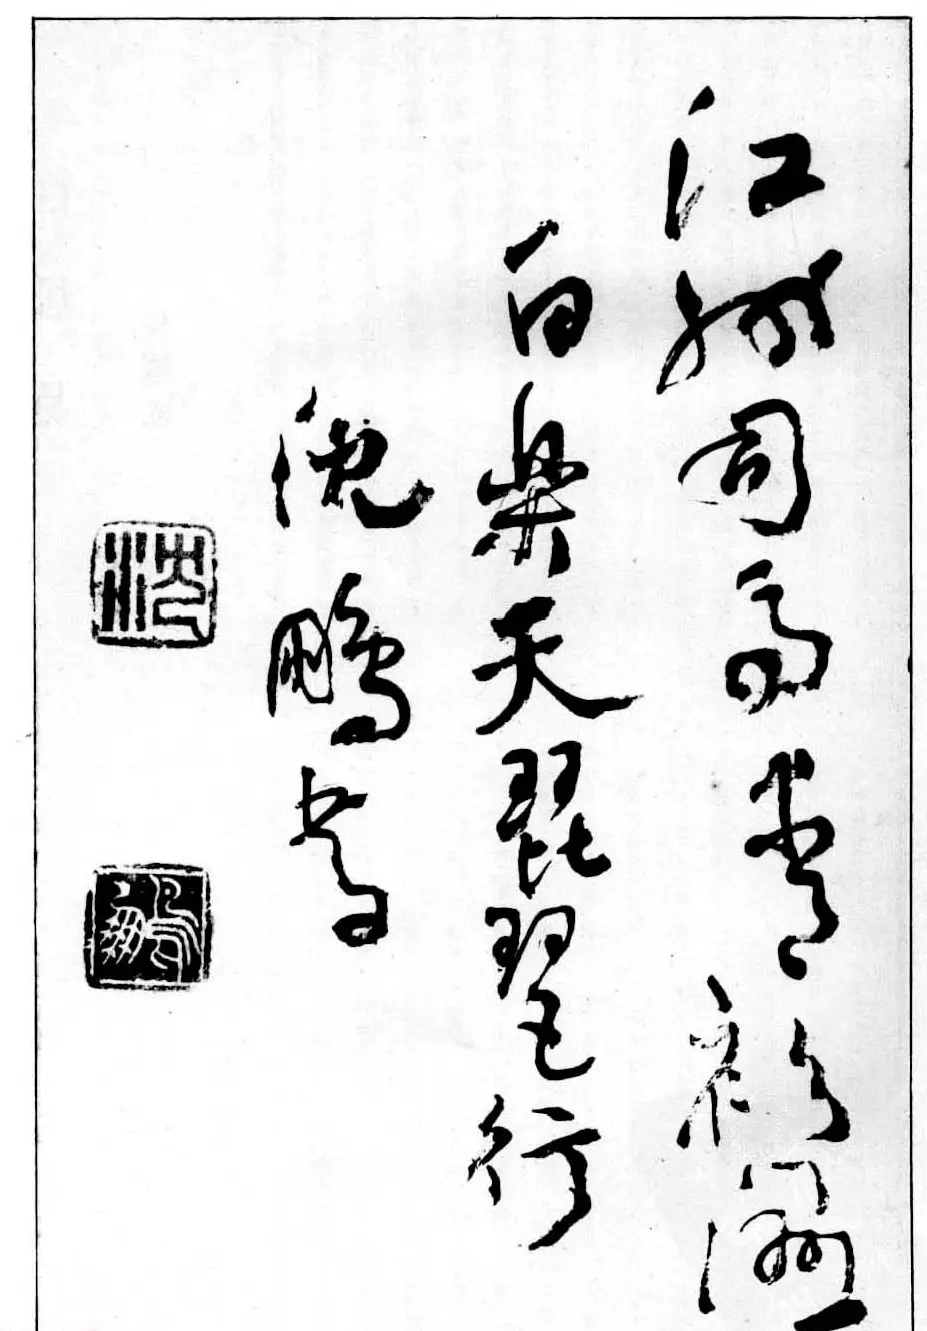 江州司马青衫湿
白乐天琵琶行
沈鹏书
沈
鹏